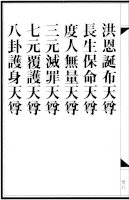 洪恩誕布天尊
長生保命天尊
度人無量天尊
三元滅罪天尊
七元覆護天尊
八卦護身天尊